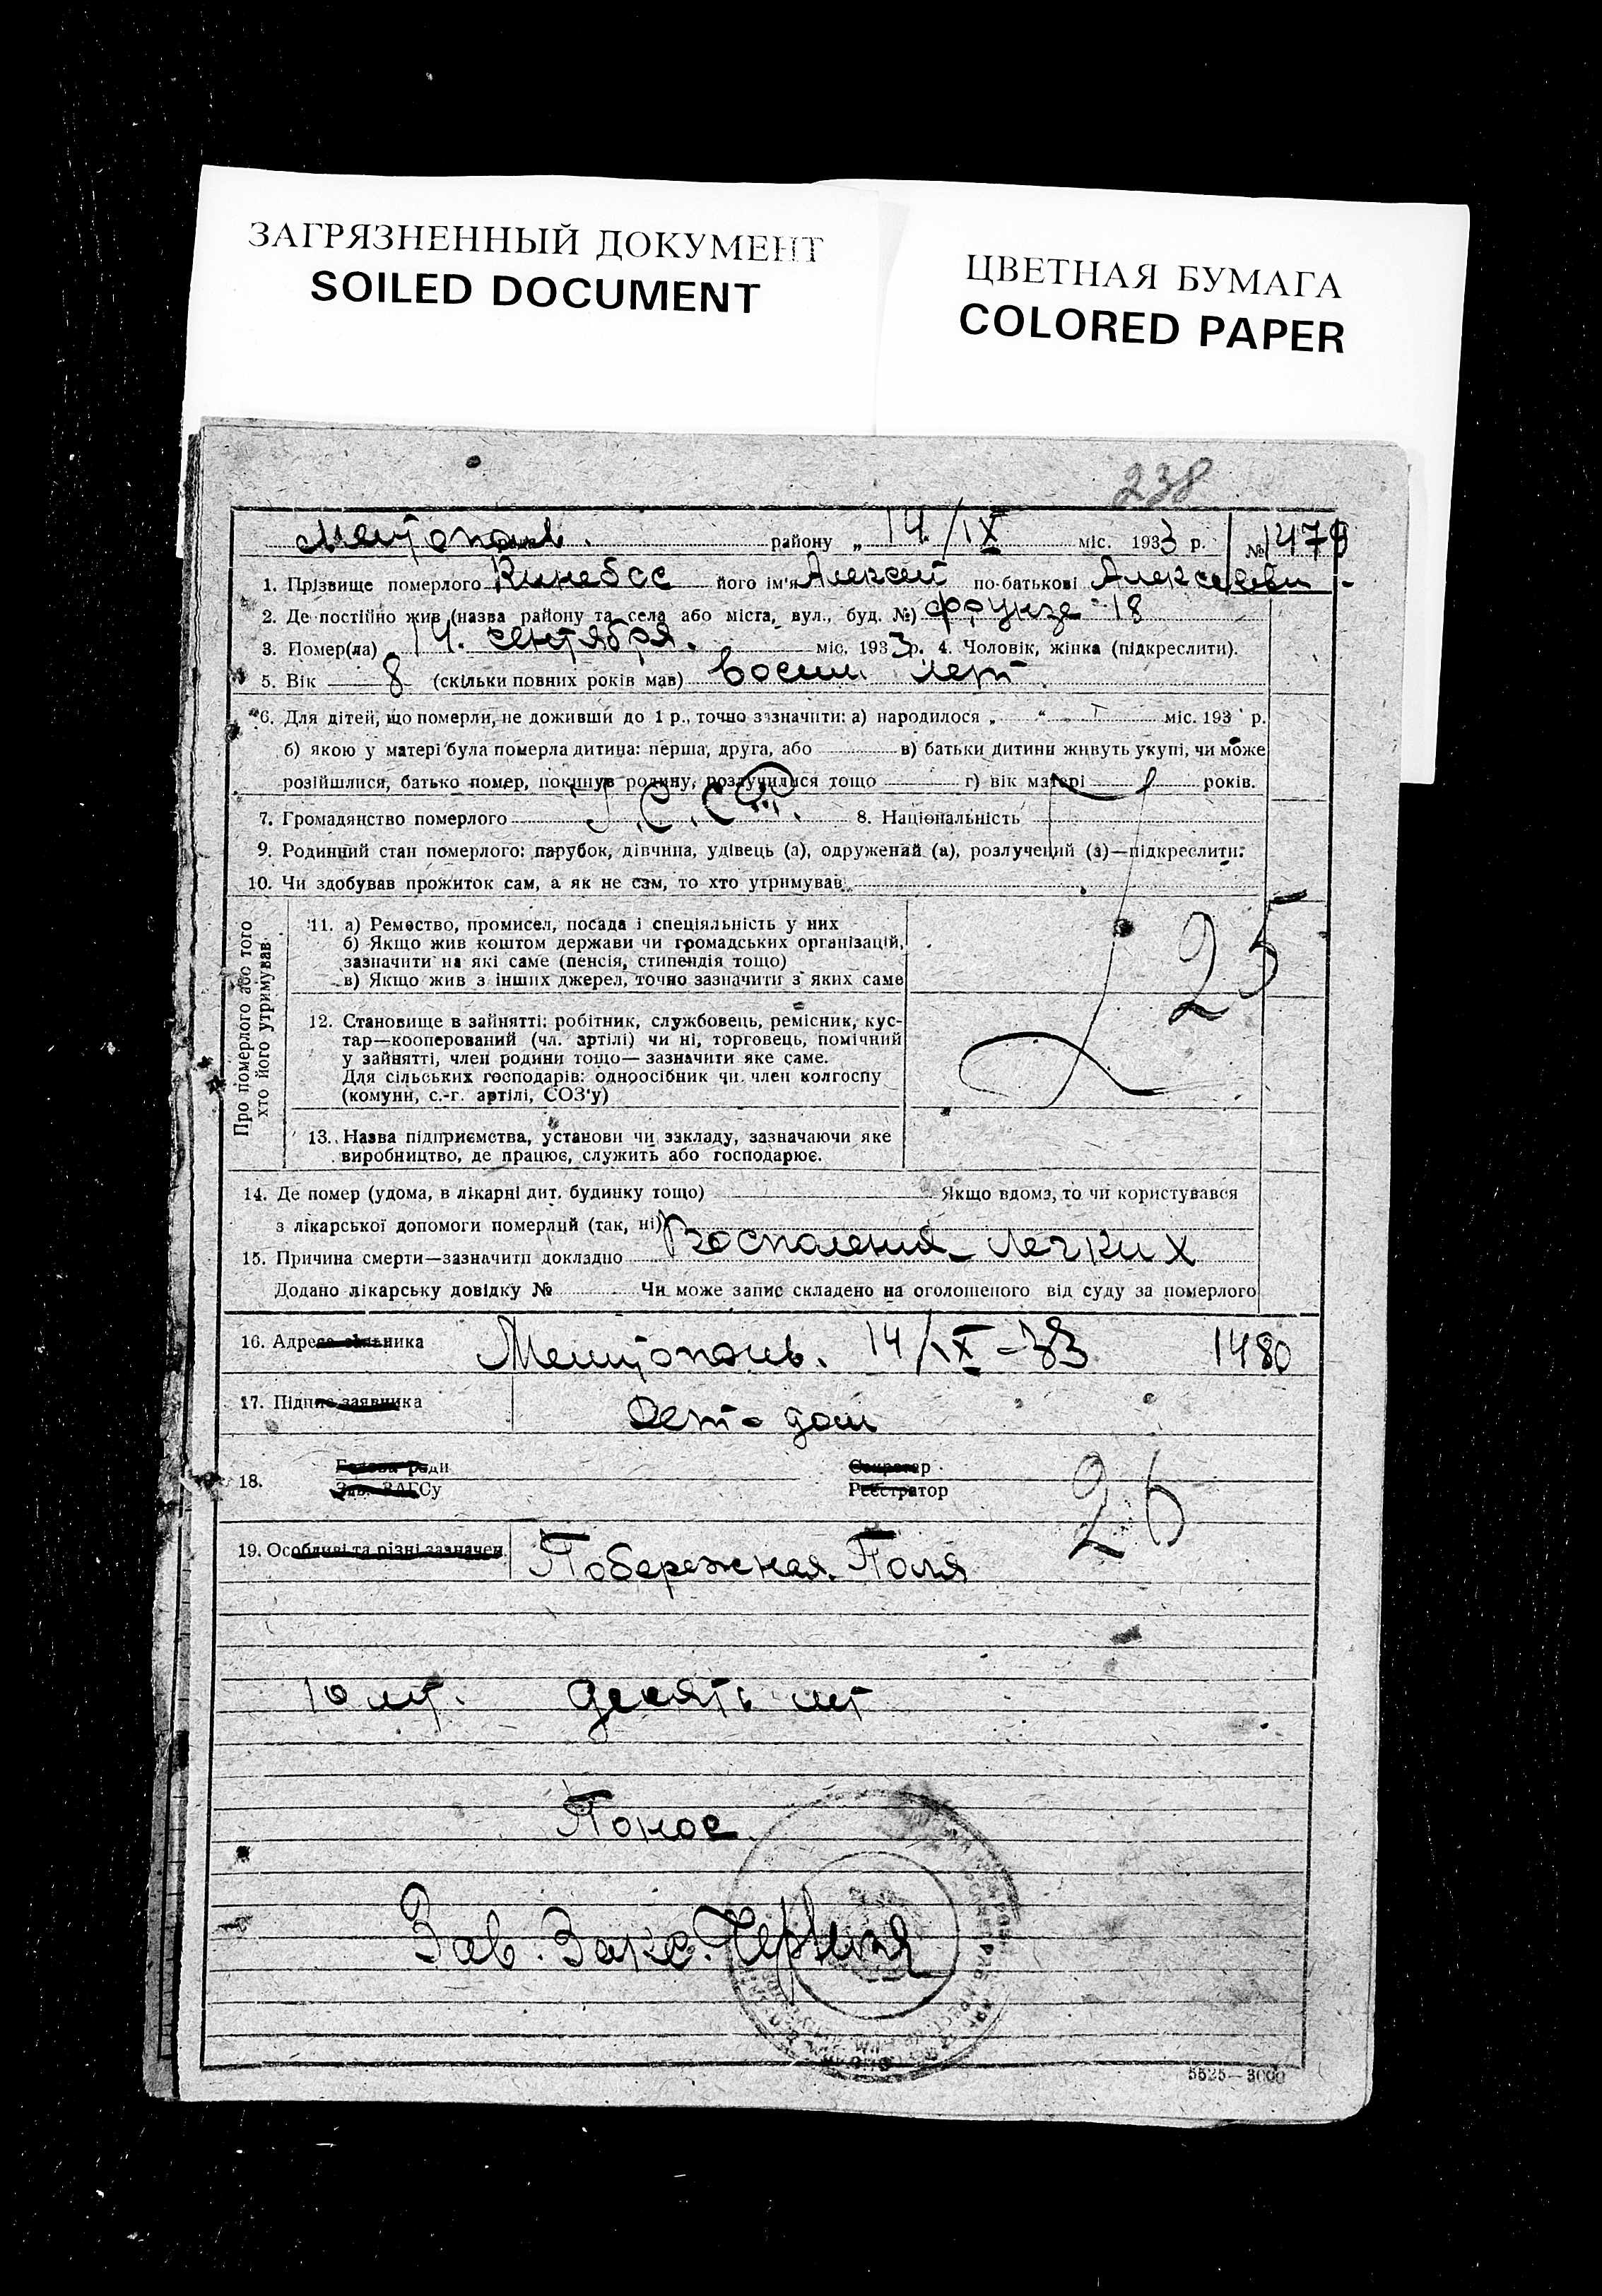 ЗАГРЯЗНЕННЫЙ ДОКУМЕНТ
SOILED DOCUMENT
ЦВЕТНАЯ БУМАГА
COLORED PAPER
238
району „ 14/IX міс. 1933 р. № 1479
1. Прізвище померлого його ім'я Алексей по-батькові
2. Де постійно жив (назва району та села або міста, вул., буд. №) Фрунзе 18
3. Помер(ла) 14. сентября. міс. 1933 р. 4. Чоловік, жінка (підкреслити).
5. Вік 8 (скільки повних років мав) восем лет
6. Для дітей, що померли, не доживши до 1 р., точно зазначити: а) народилося „ “ міс. 193 р.
б) якою у матері була померла дитина: перша, друга, або в) батьки дитини живуть укупі, чи може
розійшлися, батько помер, покинув родину, розлучилися тощо г) вік матері років.
7. Громадянство померлого 8. Національність
9. Родинний стан померлого: парубок, дівчина, удівець (а), одружений (а), розлучений (а)—підкреслити.
10. Чи здобував прожиток сам, а як не сам, то хто утримував
Про померлого або того
хто його утримував
11. а) Ремество, промисел, посада і спеціяльність у них
б) Якщо жив коштом держави чи громадських організацій,
зазначити на які саме (пенсія, стипендія тощо)
в) Якщо жив з інших джерел, точно зазначити з яких саме
25
12. Становище в зайнятті: робітник, службовець, ремісник, кус-
тар—кооперований (чл. артілі) чи ні, торговець, помічний
у зайнятті, член родини тощо— зазначити яке саме.
Для сільських господарів: одноосібник чи член колгоспу
(комуни, с.-г. артілі, СОЗ'у)
13. Назва підприємства, установи чи закладу, зазначаючи яке
виробництво, де працює, служить або господарює.
14. Де помер (удома, в лікарні дит. будинку тощо) Якщо вдома, то чи користувався
з лікарської допомоги померлий (так, ні)
15. Причина смерти—зазначити докладно Воспаления легких
Додано лікарську довідку № Чи може запис складено на оголошеного від суду за померлого
16. Адреса заявника 14/IX-33 1480
17. Підпис заявника Дет-дом
18. Голова ради Секретар
Зав. ЗАГСу Реєстратор
26
19. Особливі та різні зазначен. Побережная Поля
10 лет. десять лет
Понос
Зав. Загс.
5525—3000